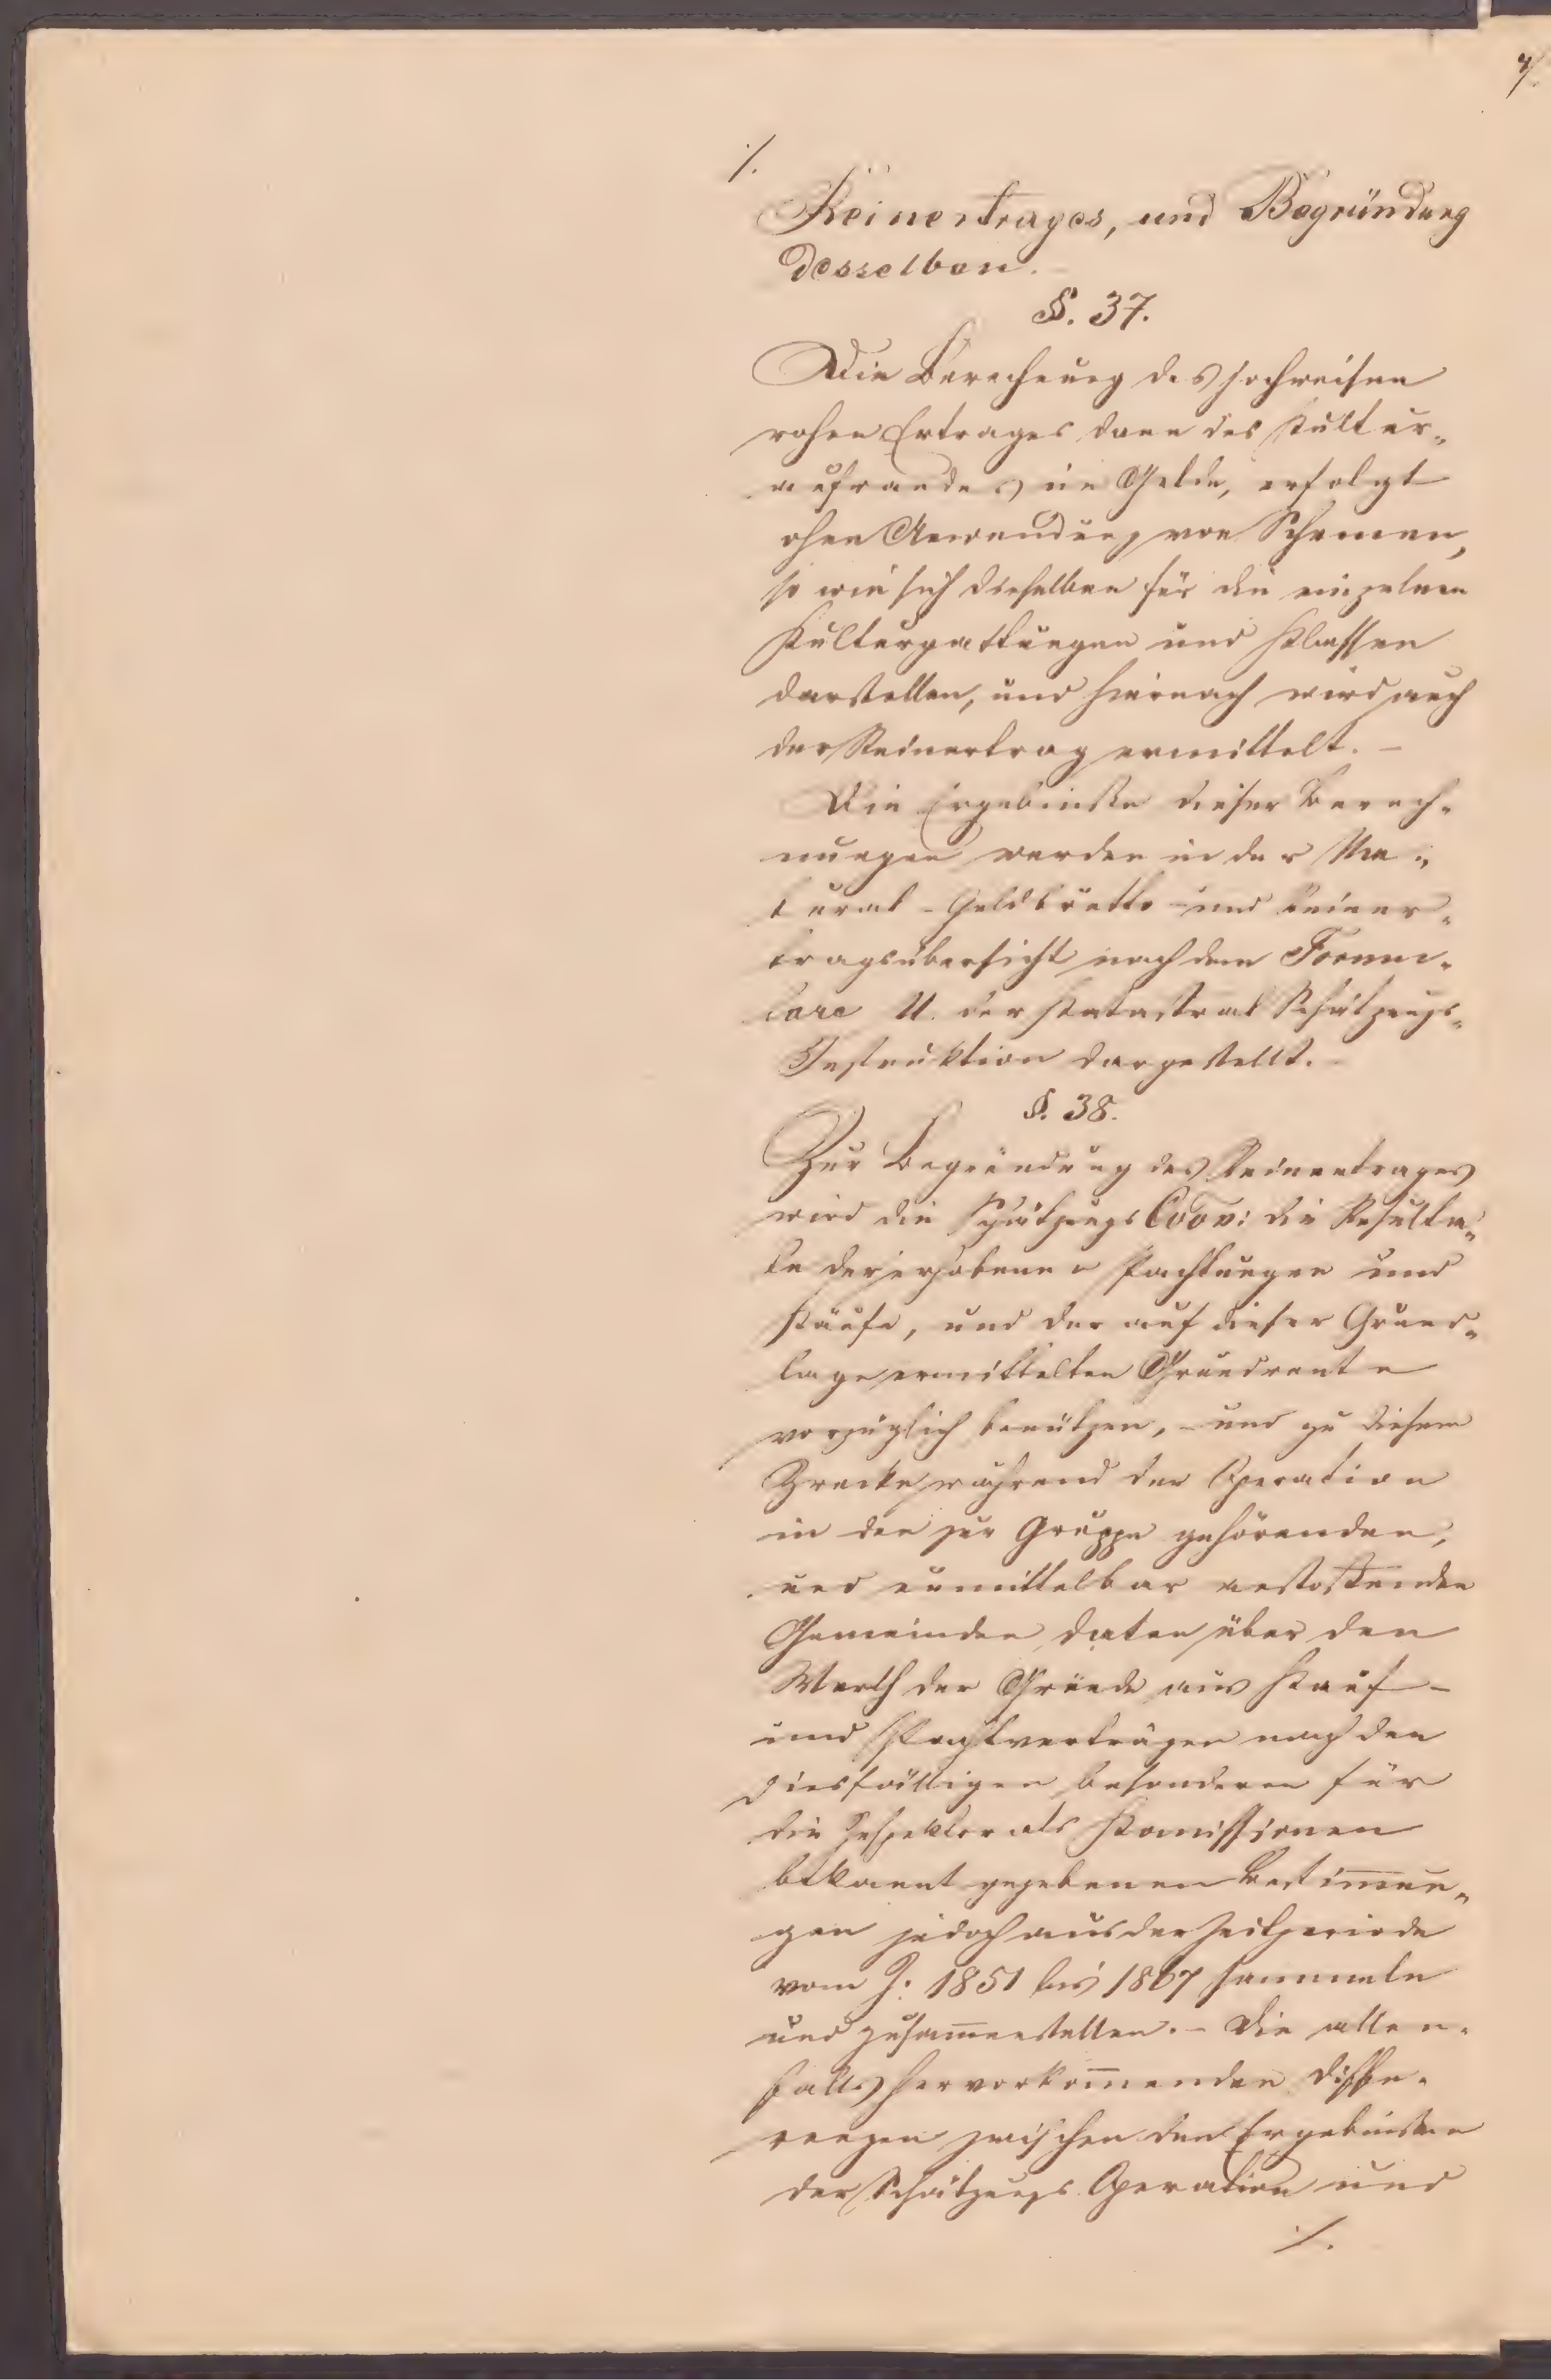 7/.
./.
Reinertrages, und Begründung
desselben.
§. 37.
Die Berechnung des jochweisen
rohen Ertrages dann des Kultur„
aufwandes im Gelde, erfolgt
ohne Anwendung von Schemen,
so wie sich dieselben für die einzelnen
Kulturgattungen und Klassen
darstellen, und hiernach wird auch
der Reinertrag ermittelt. –
Die Ergebniße dieser Berech„
nungen werden in der Na„
tural-Geldbrutto- und Reiner„
tragsübersicht nach dem Formu„
lare U. der Katastral Schätzungs„
Instruktion dargestellt. –
§. 38.
Zur Begründung des Reinertrages
wird die Schätzungs Coon: die Resulta„
te der erhobenen Pachtungen und
Käufe, und der auf dieser Grund„
lage ermittelten Grundrente
vorzüglich benützen, – und zu diesem
Zwecke während der Operation
in den zur Gruppe gehörenden,
und unmittelbar anstoßenden
Gemeinden Daten über den
Werth der Gründe aus Kauf-
und Pachtverträgen nach den
diesfälligen besonderen für
die Inspektorats Komissionen
bekannt gegebenen Bestim̅un„
gen jedoch aus der Zeitperiode
vom J: 1851 bis 1867 sammeln
und zusam̅enstellen. – Die allen„
falls hervorkom̅enden Diffe„
renzen zwischen den Ergebnißen
der Schätzungs Operation und
./.